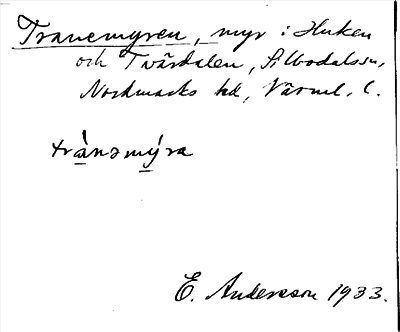 Tranemyren, myr i Huken
och Tvärdalen, Silbodalssn,
Nordmarks hd, Värml. l.
trànəmýra
E. Andersson 1933.